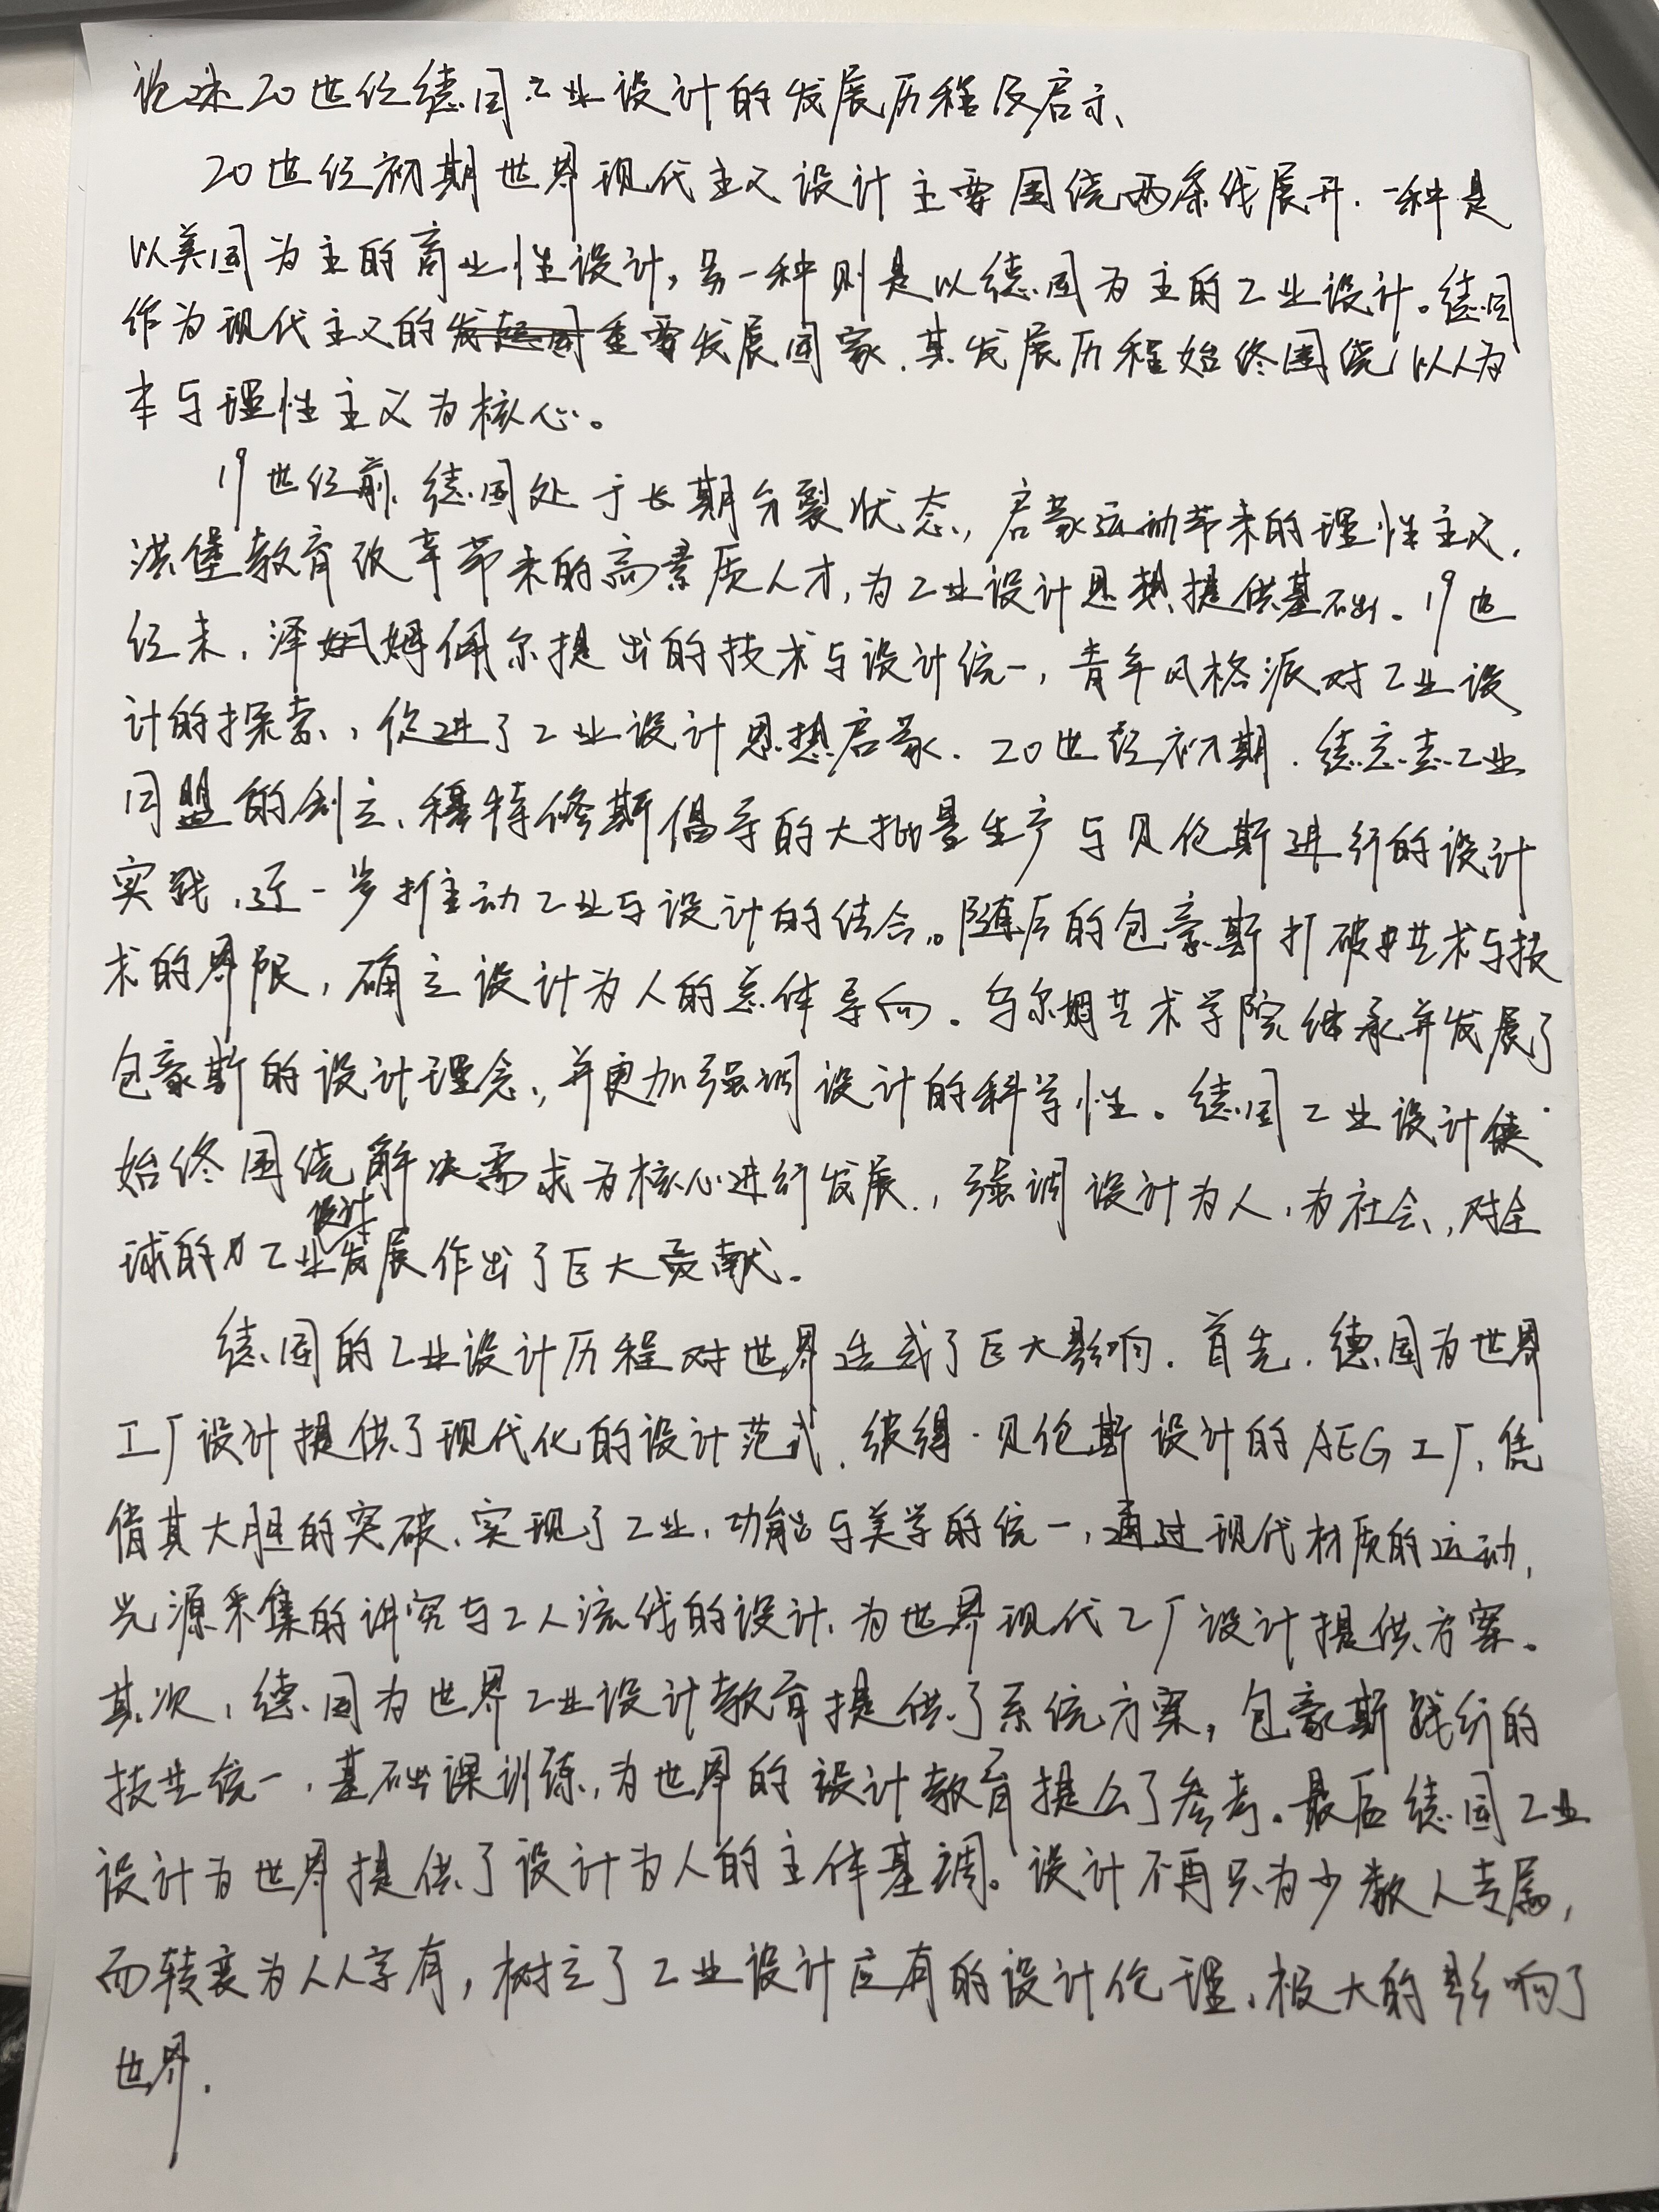 论述20世纪德国工业设计的发展历程及启示、
20世纪初期世界现代主义设计主要围绕两条线展开.一种是
以美国为主的商业性设计,另一种则是以德国为主的工业设计。德国
作为现代主义的重要发展国家.其发展历程始终围绕以人为
本与理性主义为核心。
19世纪前,德国处于长期分裂状态,启蒙运动带来的理性主义,
洪堡教育改革带来的高素质人才,为工业设计思想提供基础.19世
纪末,泽姆佩尔提出的技术与设计统一,青年风格派对工业设
计的探索,促进了工业设计思想启蒙.20世纪初期.德意志工业
同盟的创立、穆特修斯倡导的大批量生产与贝伦斯进行的设计
实践,进一步推动工业与设计的结合。随后的包豪斯打破艺术与技
术的界限,确立设计为人的总体导向.乌尔姆艺术学院继承并发展了
包豪斯的设计理念,并更加强调设计的科学性。德国工业设计
始终围绕解决需求为核心进行发展,强调设计为人,为社会,对全
球的工业设计发展作出了巨大贡献.
德国的工业设计历程对世界造成了巨大影响.首先.德国为世界
工厂设计提供了现代化的设计范式.彼得·贝伦斯设计的AEG工厂,凭
借其大胆的突破,实现了工业,功能与美学的统一,通过现代材质的运动,
光源采集的讲究与工人流线的设计,为世界现代工厂设计提供方案。
其次,德国为世界工业设计教育提供了系统方案,包豪斯践行的
技艺统一,基础课训练,为世界的设计教育提么了参考。最后德国工业
设计为世界提供了设计为人的主体基调。设计不再只为少数人专属,
而转变为人人享有,树立了工业设计应有的设计伦理,极大的影响了
世界.